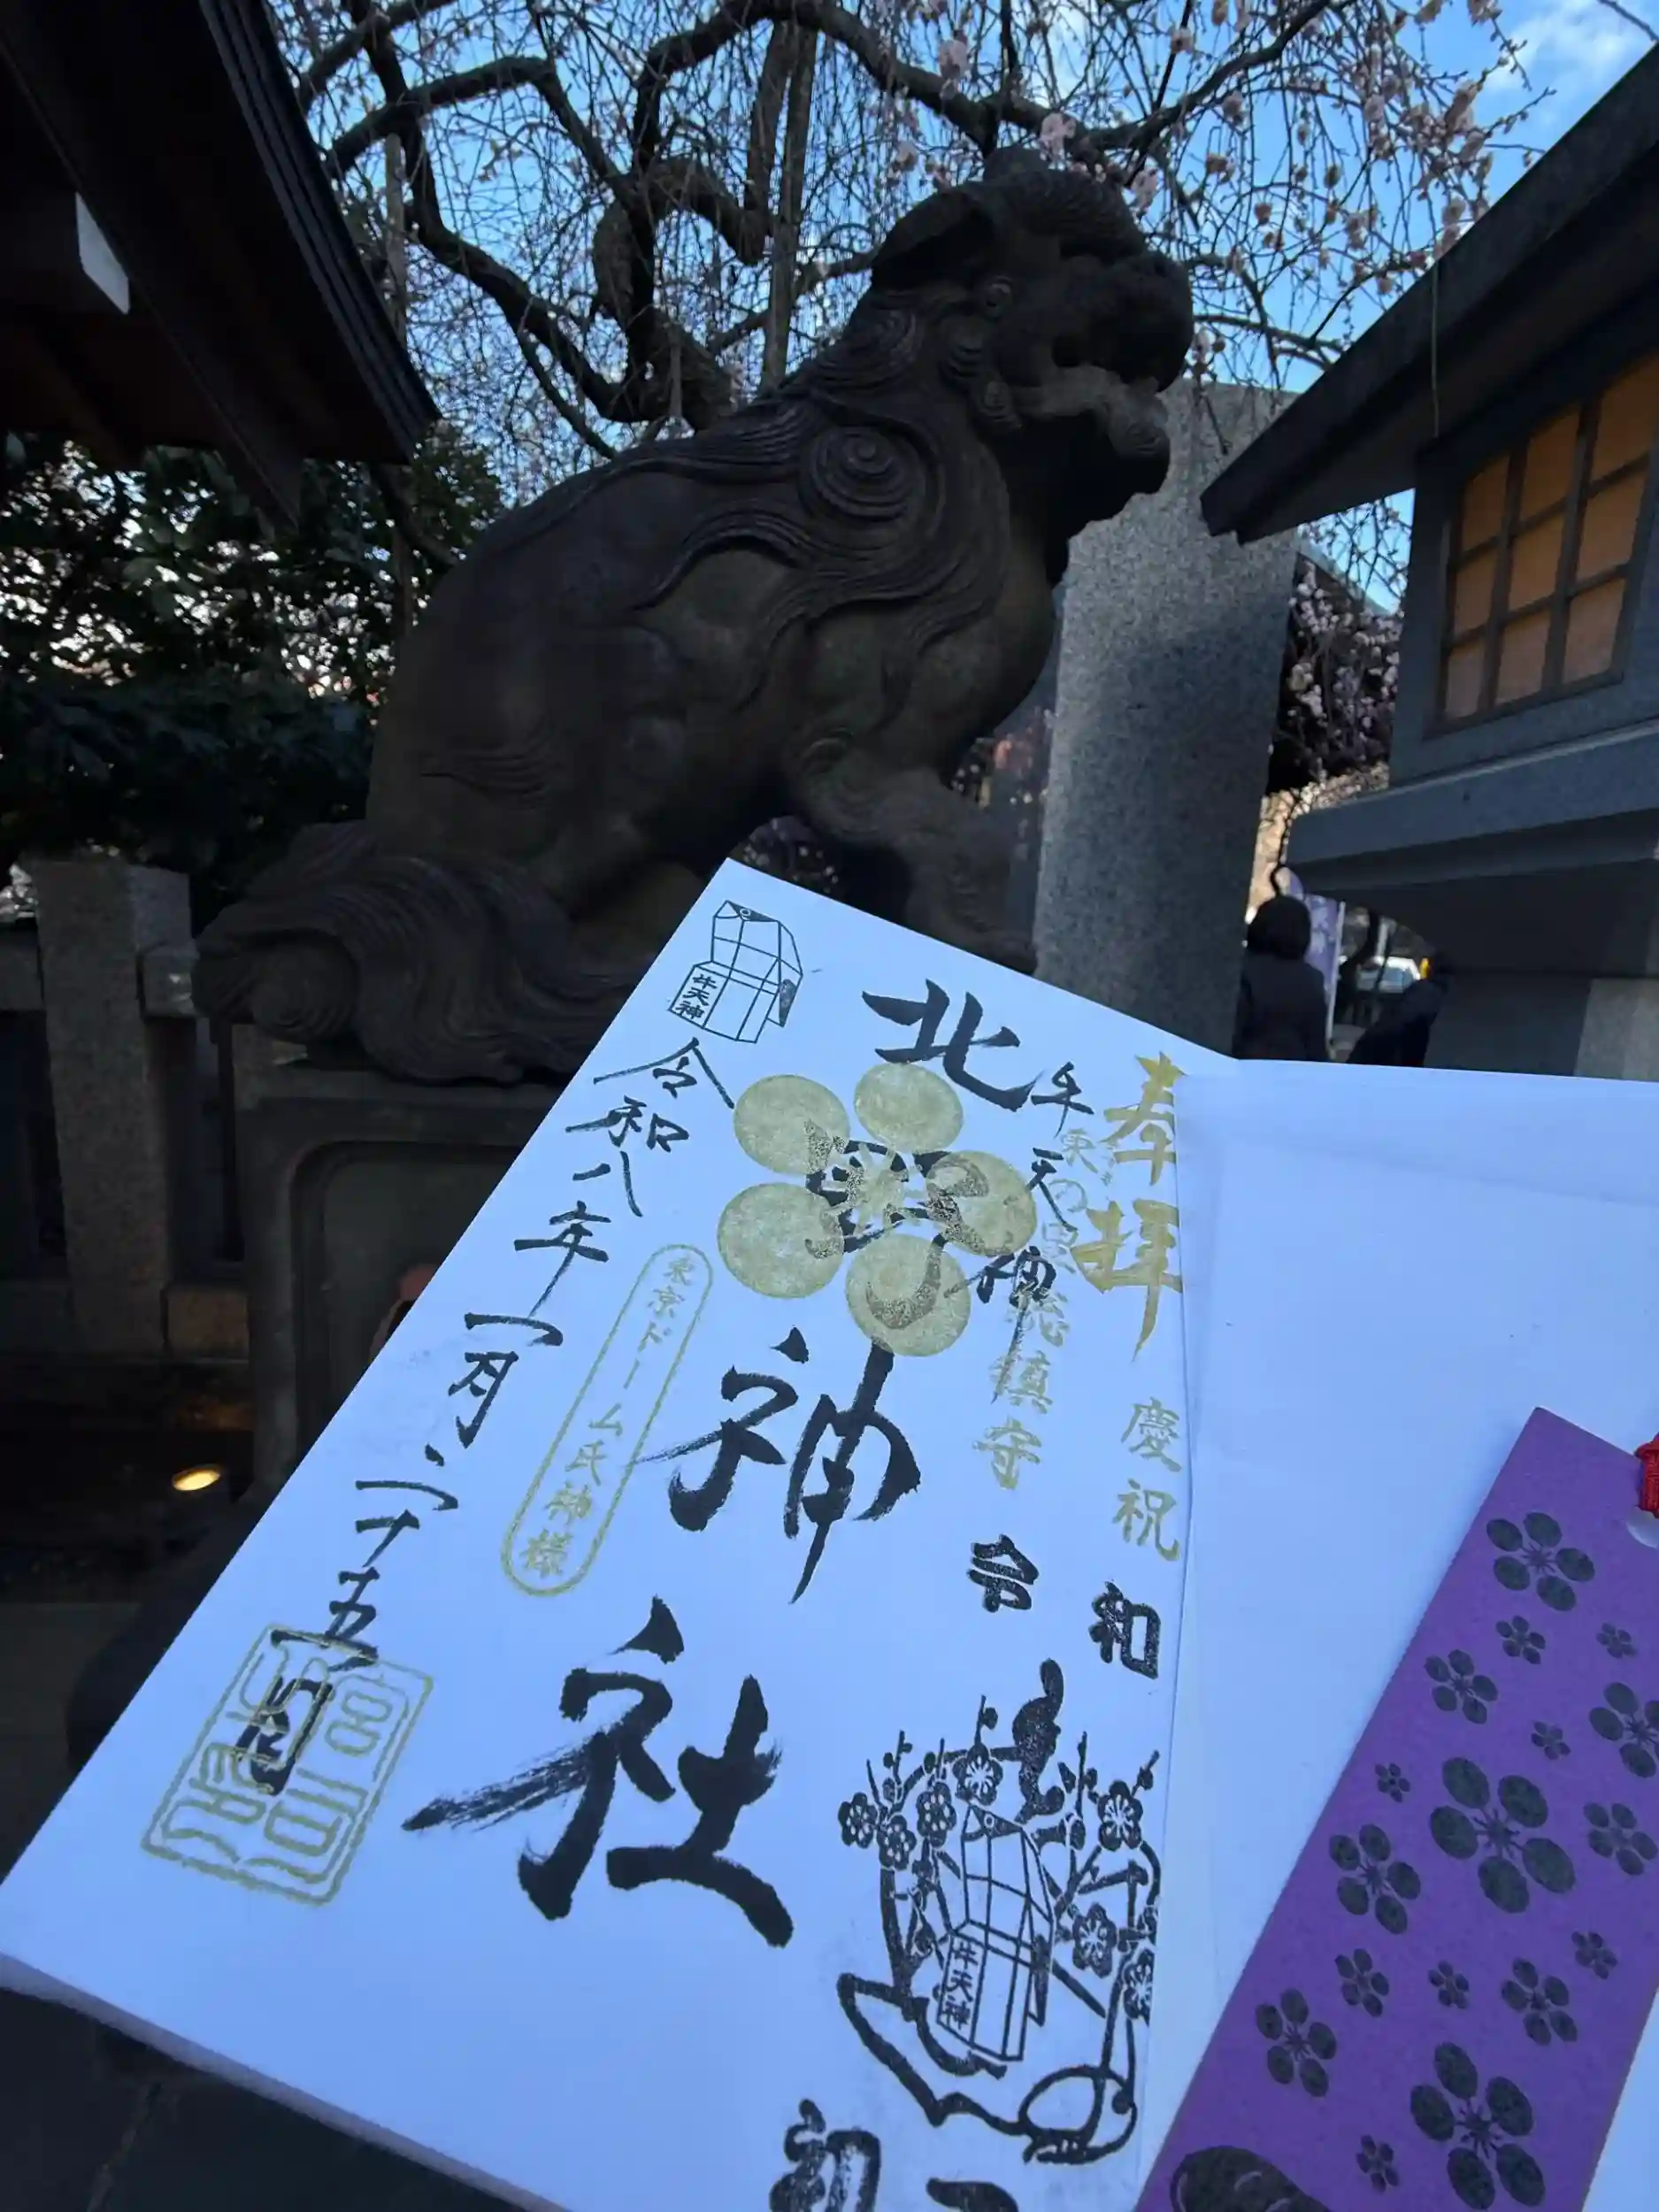 奉拝
慶祝
牛天神
東の
総鎮守
令和
牛天神
初
北野神社
東京ドーム氏神様
牛天神
令和八年一月二十五日